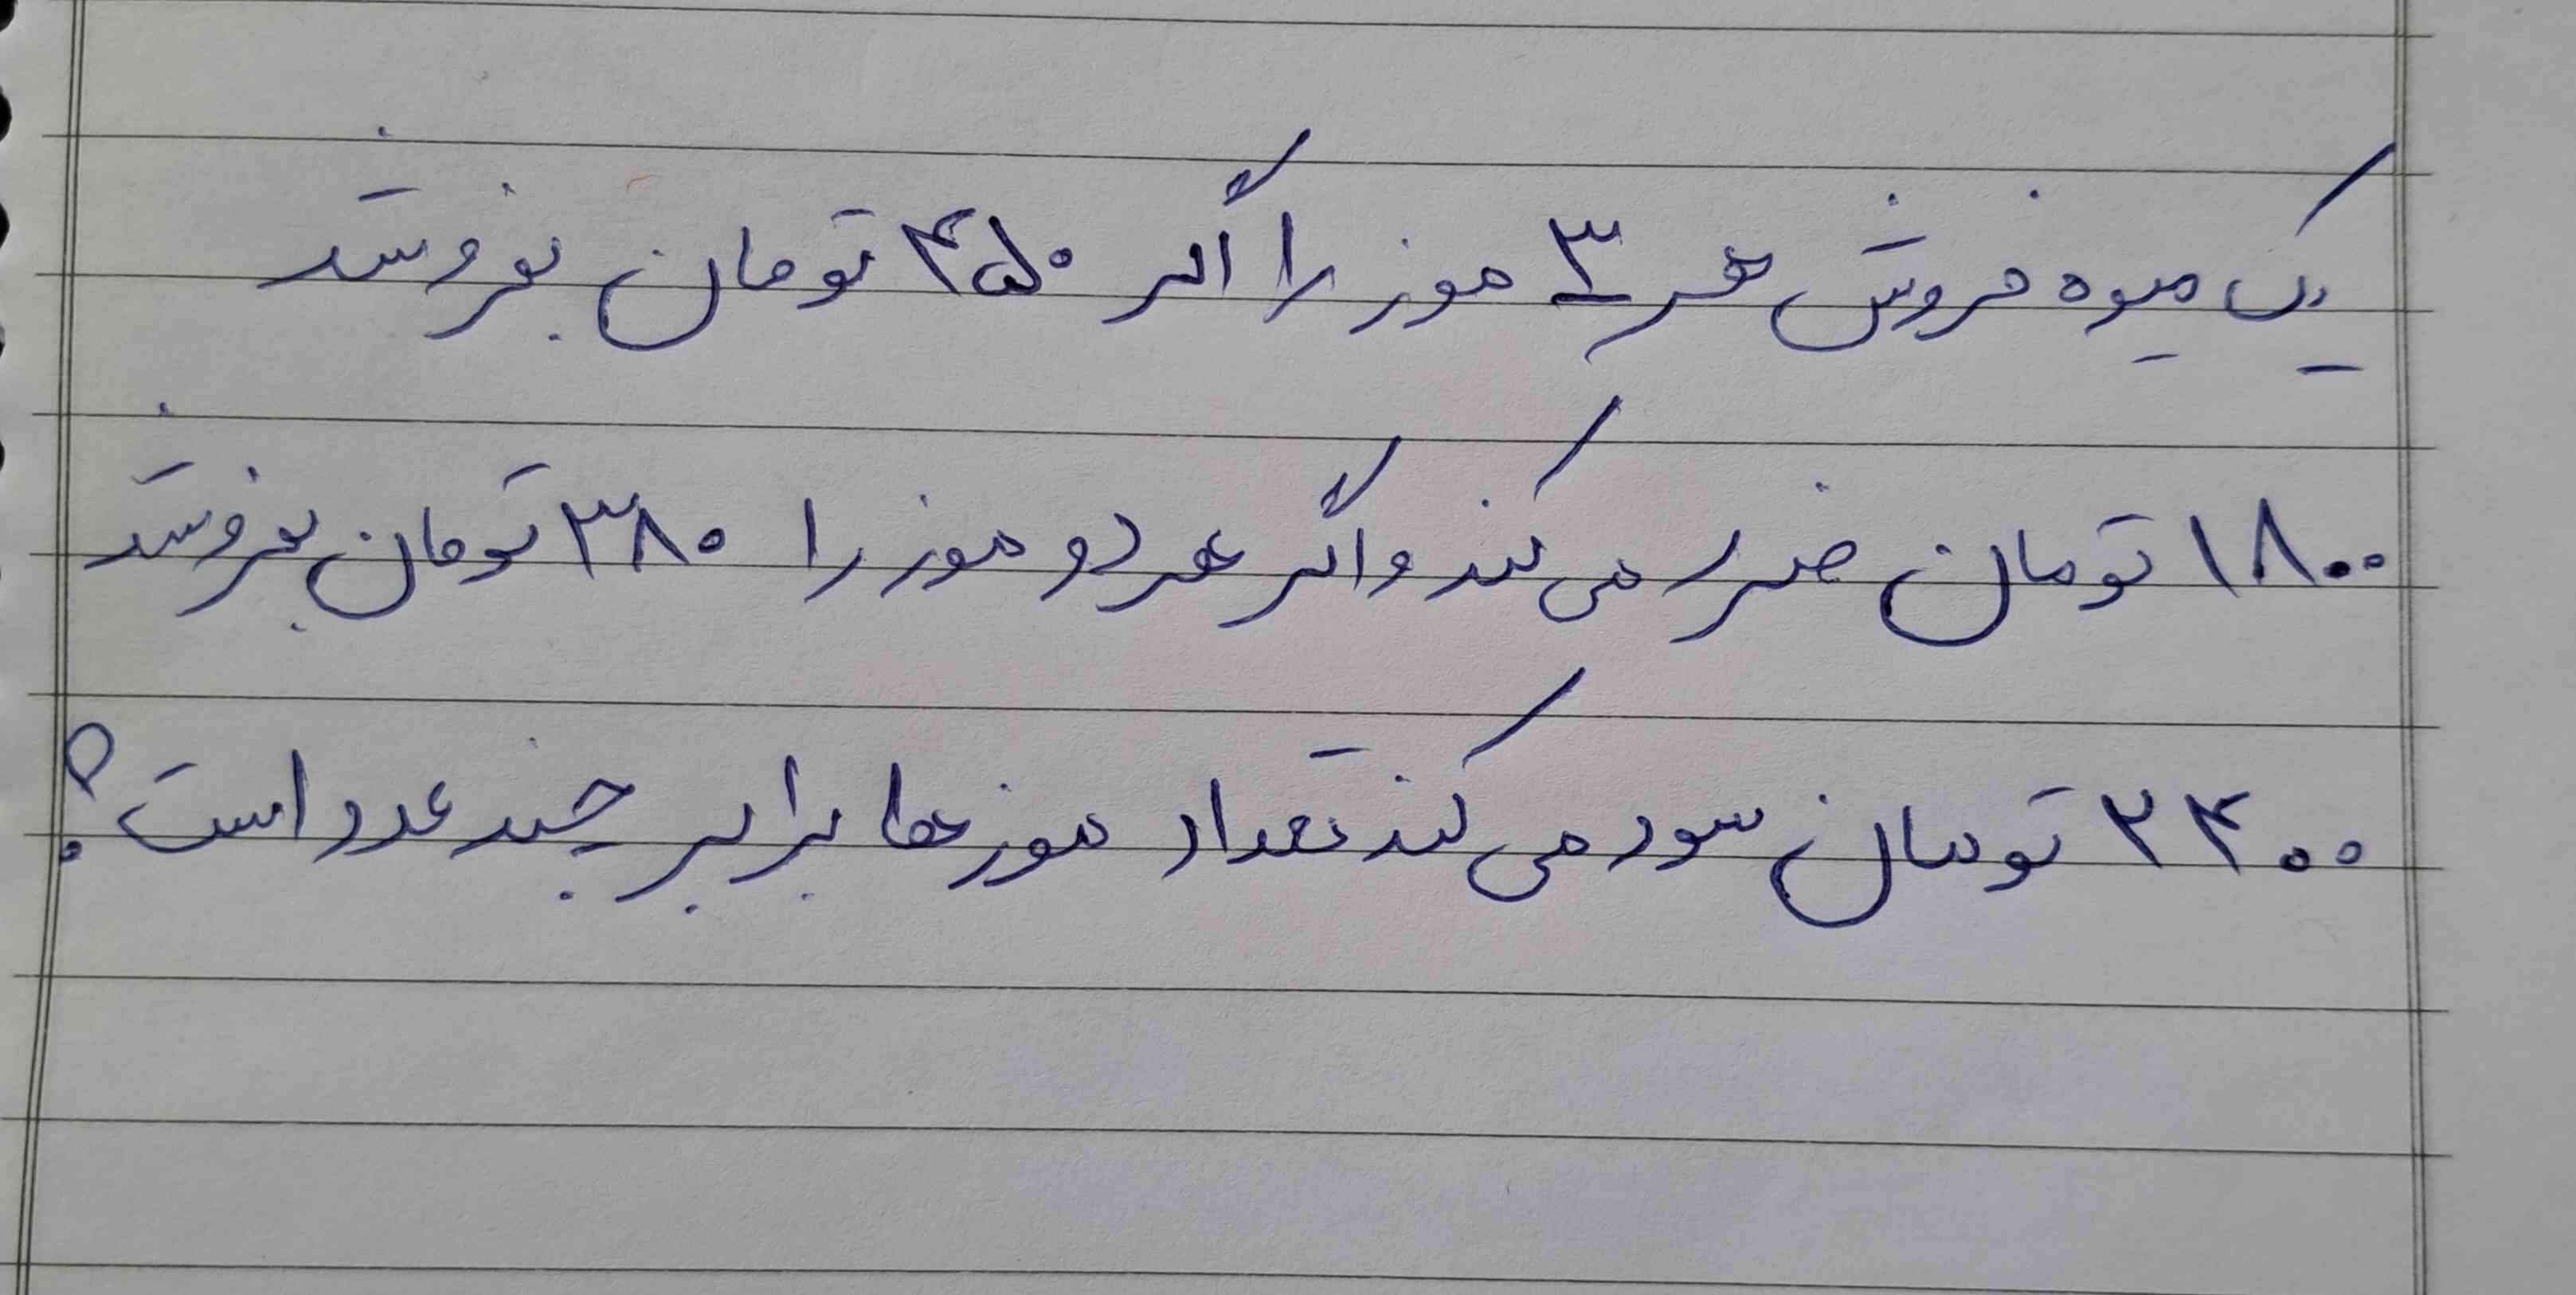 یک میوه فروش هر ۳ موز را اگر ۴۵۰ تومان بفروشد
۱۸۰۰ تومان ضرر می کند و اگر هر دو موز را ۳۸۰ تومان بفروشد
۲۴۰۰ تومان سود می کند تعداد موزها برابر چند عدد است؟